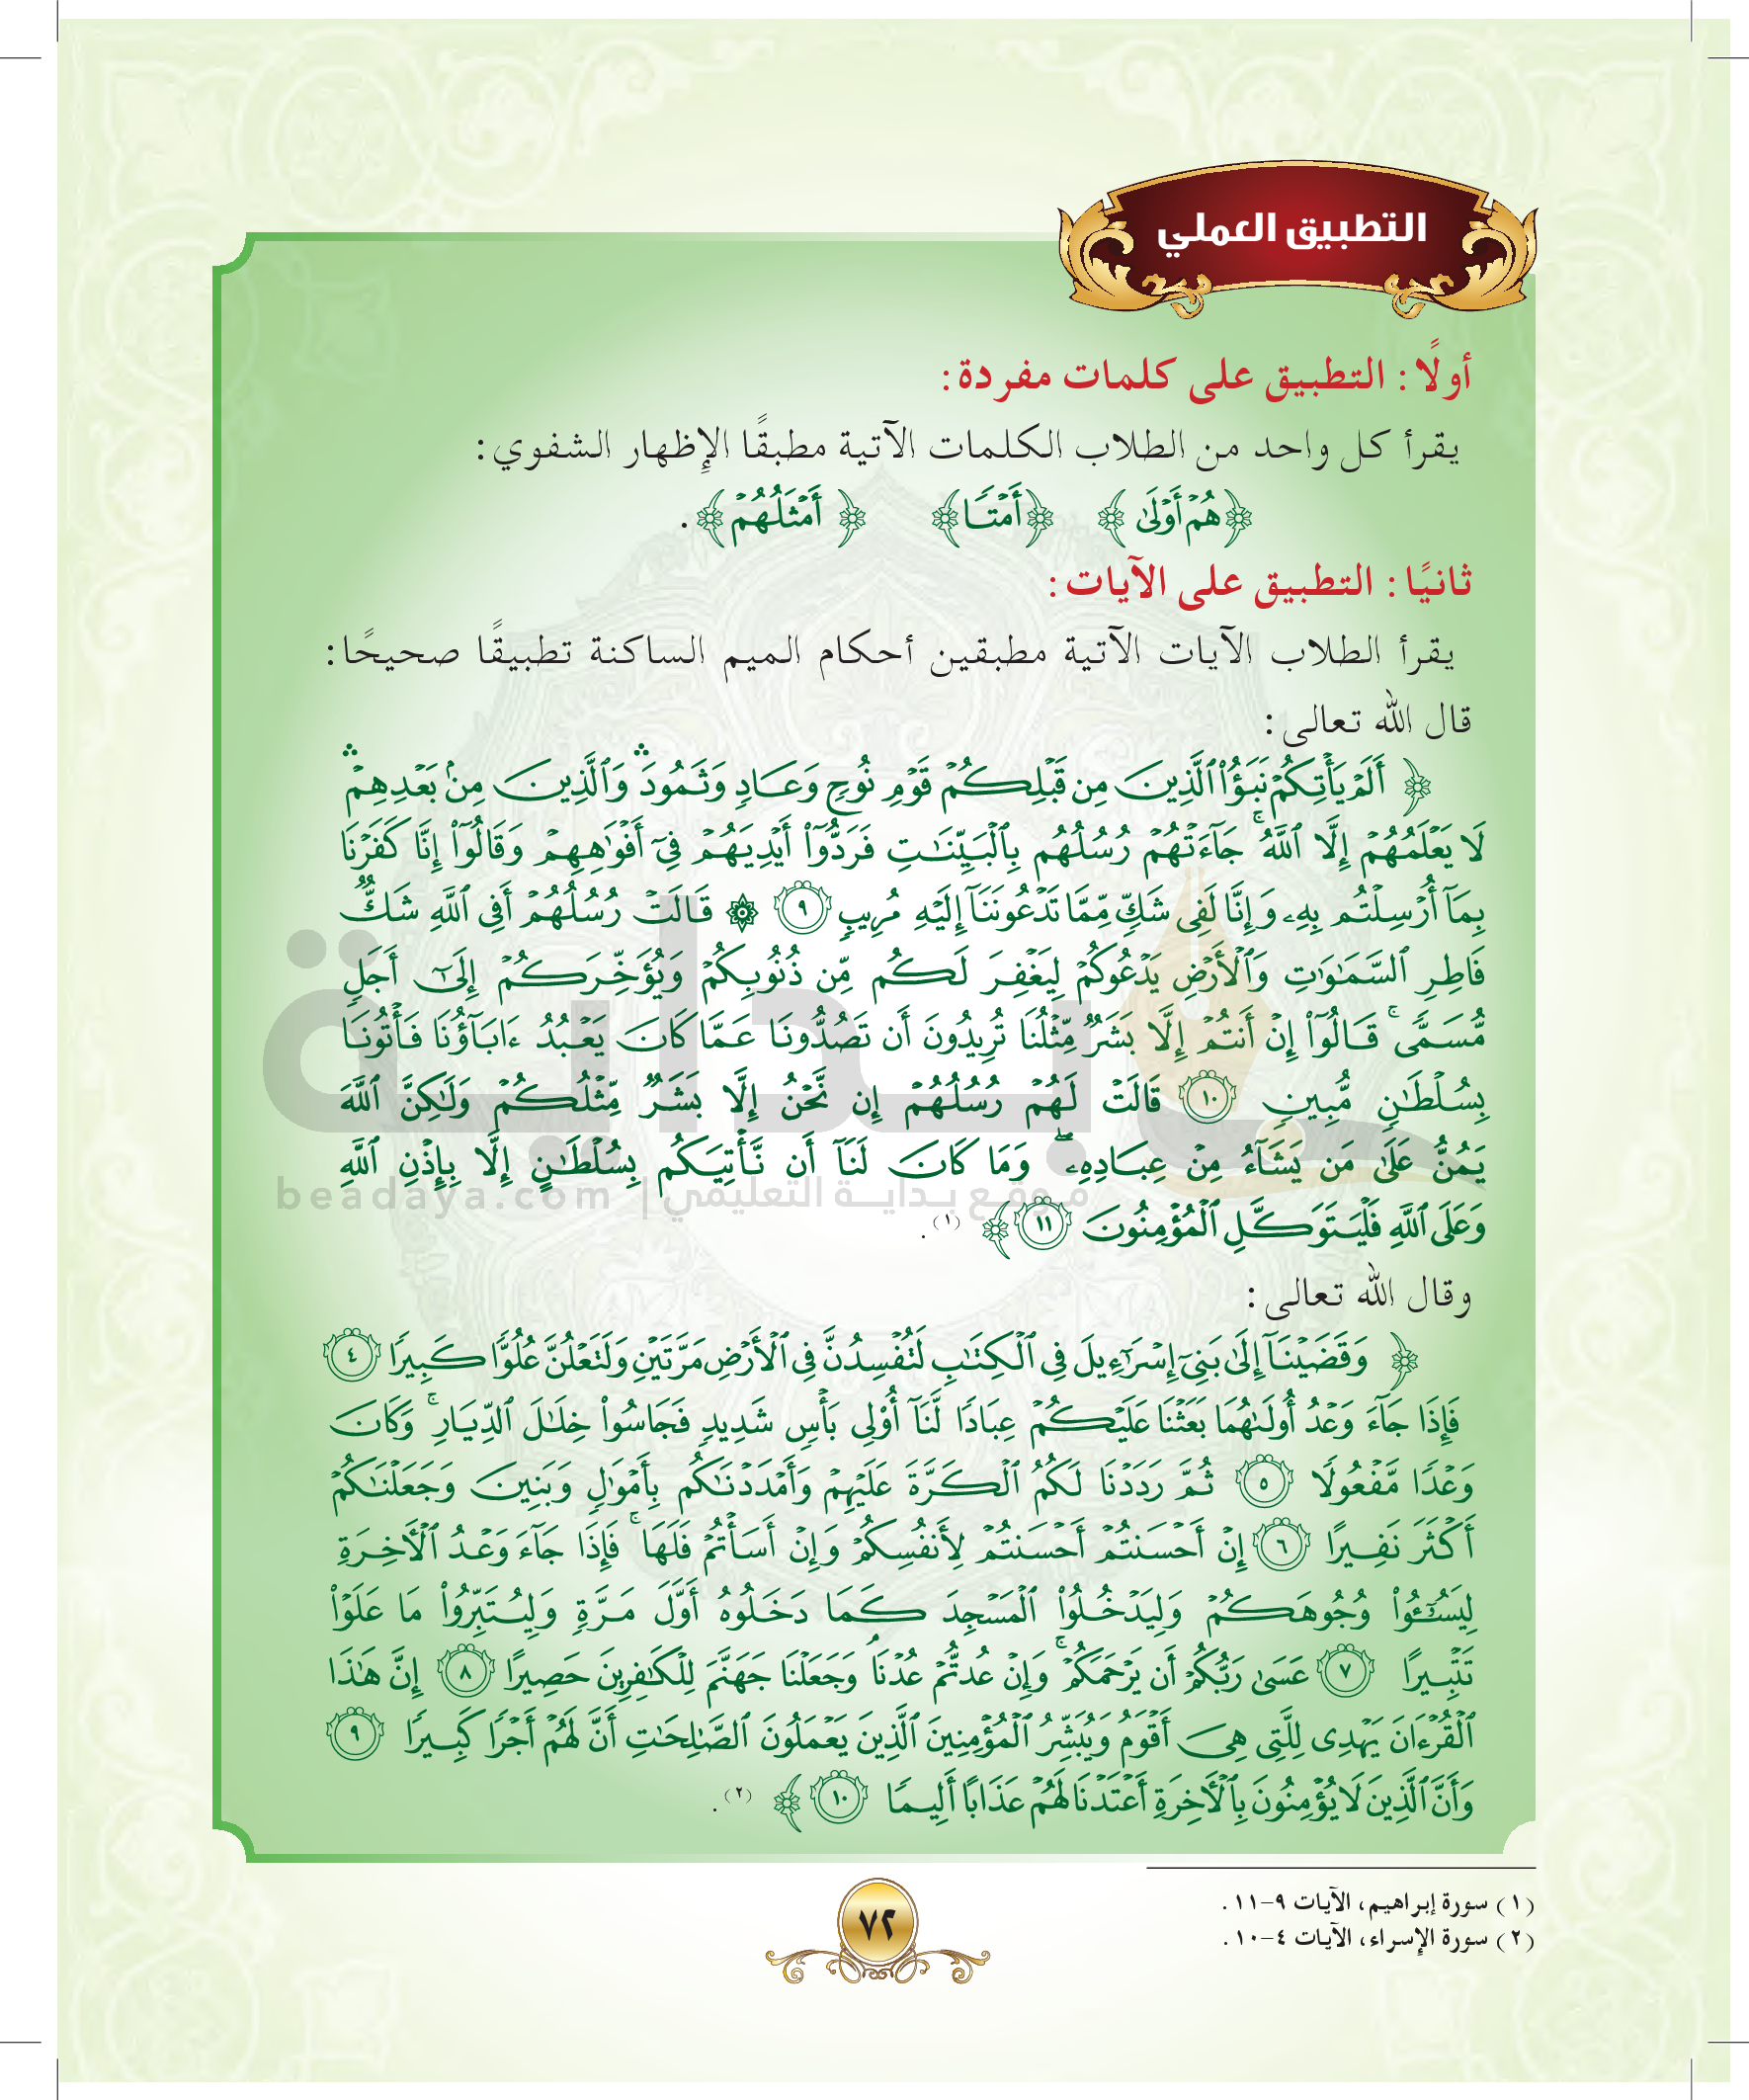 التطبيق العملي
أولًا: التطبيق على كلمات مفردة:
يقرأ كل واحد من الطلاب الكلمات الآتية مطبقًا الإظهار الشفوي:
﴿هُمْ أَوْلَىٰ﴾ ﴿أَمْتًا﴾ ﴿أَمْثَلُهُمْ﴾.
ثانيًا: التطبيق على الآيات:
يقرأ الطلاب الآيات الآتية مطبقين أحكام الميم الساكنة تطبيقًا صحيحًا:
قال الله تعالى:
﴿ أَلَمْ يَأْتِكُمْ نَبَؤُا۟ ٱلَّذِينَ مِن قَبْلِكُمْ قَوْمِ نُوحٍ وَعَادٍ وَثَمُودَ ۛ وَٱلَّذِينَ مِنۢ بَعْدِهِمْ ۛ
لَا يَعْلَمُهُمْ إِلَّا ٱللَّهُ ۚ جَآءَتْهُمْ رُسُلُهُم بِٱلْبَيِّنَـٰتِ فَرَدُّوٓا۟ أَيْدِيَهُمْ فِىٓ أَفْوَٰهِهِمْ وَقَالُوٓا۟ إِنَّا كَفَرْنَا
بِمَآ أُرْسِلْتُم بِهِۦ وَإِنَّا لَفِى شَكٍّ مِّمَّا تَدْعُونَنَآ إِلَيْهِ مُرِيبٍ ٩ ۞ قَالَتْ رُسُلُهُمْ أَفِى ٱللَّهِ شَكٌّ
فَاطِرِ ٱلسَّمَـٰوَٰتِ وَٱلْأَرْضِ يَدْعُوكُمْ لِيَغْفِرَ لَكُم مِّن ذُنُوبِكُمْ وَيُؤَخِّرَكُمْ إِلَىٰٓ أَجَلٍ
مُّسَمًّى ۚ قَالُوٓا۟ إِنْ أَنتُمْ إِلَّا بَشَرٌ مِّثْلُنَا تُرِيدُونَ أَن تَصُدُّونَا عَمَّا كَانَ يَعْبُدُ ءَابَآؤُنَا فَأْتُونَا
بِسُلْطَـٰنٍ مُّبِينٍ ١٠ قَالَتْ لَهُمْ رُسُلُهُمْ إِن نَّحْنُ إِلَّا بَشَرٌ مِّثْلُكُمْ وَلَـٰكِنَّ ٱللَّهَ
يَمُنُّ عَلَىٰ مَن يَشَآءُ مِنْ عِبَادِهِۦ ۖ وَمَا كَانَ لَنَآ أَن نَّأْتِيَكُم بِسُلْطَـٰنٍ إِلَّا بِإِذْنِ ٱللَّهِ
وَعَلَى ٱللَّهِ فَلْيَتَوَكَّلِ ٱلْمُؤْمِنُونَ ١١ ﴾ (١).
وقال الله تعالى:
﴿ وَقَضَيْنَآ إِلَىٰ بَنِىٓ إِسْرَٰٓءِيلَ فِى ٱلْكِتَـٰبِ لَتُفْسِدُنَّ فِى ٱلْأَرْضِ مَرَّتَيْنِ وَلَتَعْلُنَّ عُلُوًّا كَبِيرًا ٤
فَإِذَا جَآءَ وَعْدُ أُولَىٰهُمَا بَعَثْنَا عَلَيْكُمْ عِبَادًا لَّنَآ أُو۟لِى بَأْسٍ شَدِيدٍ فَجَاسُوا۟ خِلَـٰلَ ٱلدِّيَارِ ۚ وَكَانَ
وَعْدًا مَّفْعُولًا ٥ ثُمَّ رَدَدْنَا لَكُمُ ٱلْكَرَّةَ عَلَيْهِمْ وَأَمْدَدْنَـٰكُم بِأَمْوَٰلٍ وَبَنِينَ وَجَعَلْنَـٰكُمْ
أَكْثَرَ نَفِيرًا ٦ إِنْ أَحْسَنتُمْ أَحْسَنتُمْ لِأَنفُسِكُمْ وَإِنْ أَسَأْتُمْ فَلَهَا ۚ فَإِذَا جَآءَ وَعْدُ ٱلْـَٔاخِرَةِ
لِيَسُـۥٓـُٔوا۟ وُجُوهَكُمْ وَلِيَدْخُلُوا۟ ٱلْمَسْجِدَ كَمَا دَخَلُوهُ أَوَّلَ مَرَّةٍ وَلِيُتَبِّرُوا۟ مَا عَلَوْا۟
تَتْبِيرًا ٧ عَسَىٰ رَبُّكُمْ أَن يَرْحَمَكُمْ ۚ وَإِنْ عُدتُّمْ عُدْنَا ۘ وَجَعَلْنَا جَهَنَّمَ لِلْكَـٰفِرِينَ حَصِيرًا ٨ إِنَّ هَـٰذَا
ٱلْقُرْءَانَ يَهْدِى لِلَّتِى هِىَ أَقْوَمُ وَيُبَشِّرُ ٱلْمُؤْمِنِينَ ٱلَّذِينَ يَعْمَلُونَ ٱلصَّـٰلِحَـٰتِ أَنَّ لَهُمْ أَجْرًا كَبِيرًا ٩
وَأَنَّ ٱلَّذِينَ لَا يُؤْمِنُونَ بِٱلْـَٔاخِرَةِ أَعْتَدْنَا لَهُمْ عَذَابًا أَلِيمًا ١٠ ﴾ (٢).
بداية
موقع بداية التعليمي | beadaya.com
(١) سورة إبراهيم، الآيات ٩-١١.
(٢) سورة الإسراء، الآيات ٤-١٠.
٧٢